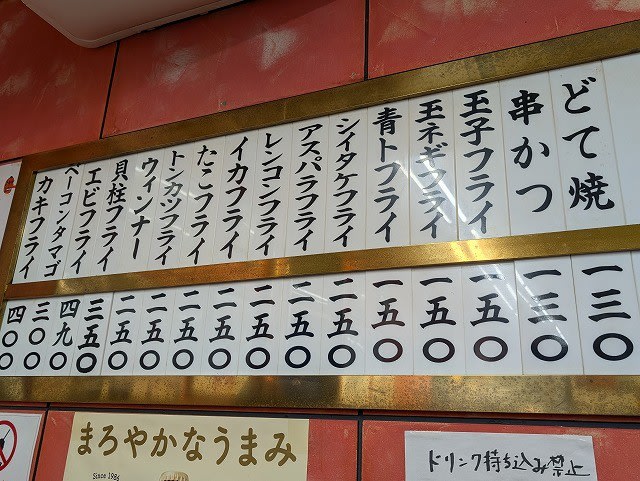 どて焼
串かつ
玉子フライ
玉ネギフライ
青トフライ
シイタケフライ
アスパラフライ
レンコンフライ
イカフライ
たこフライ
トンカツフライ
ウィンナー
貝柱フライ
エビフライ
ベーコンタマゴ
カキフライ
一三〇
一三〇
一五〇
一五〇
一五〇
二五〇
二五〇
二五〇
二五〇
二五〇
二五〇
二五〇
三五〇
四九〇
三〇〇
四〇〇
まろやかなうまみ
Since 1984
ドリンク持ち込み禁止